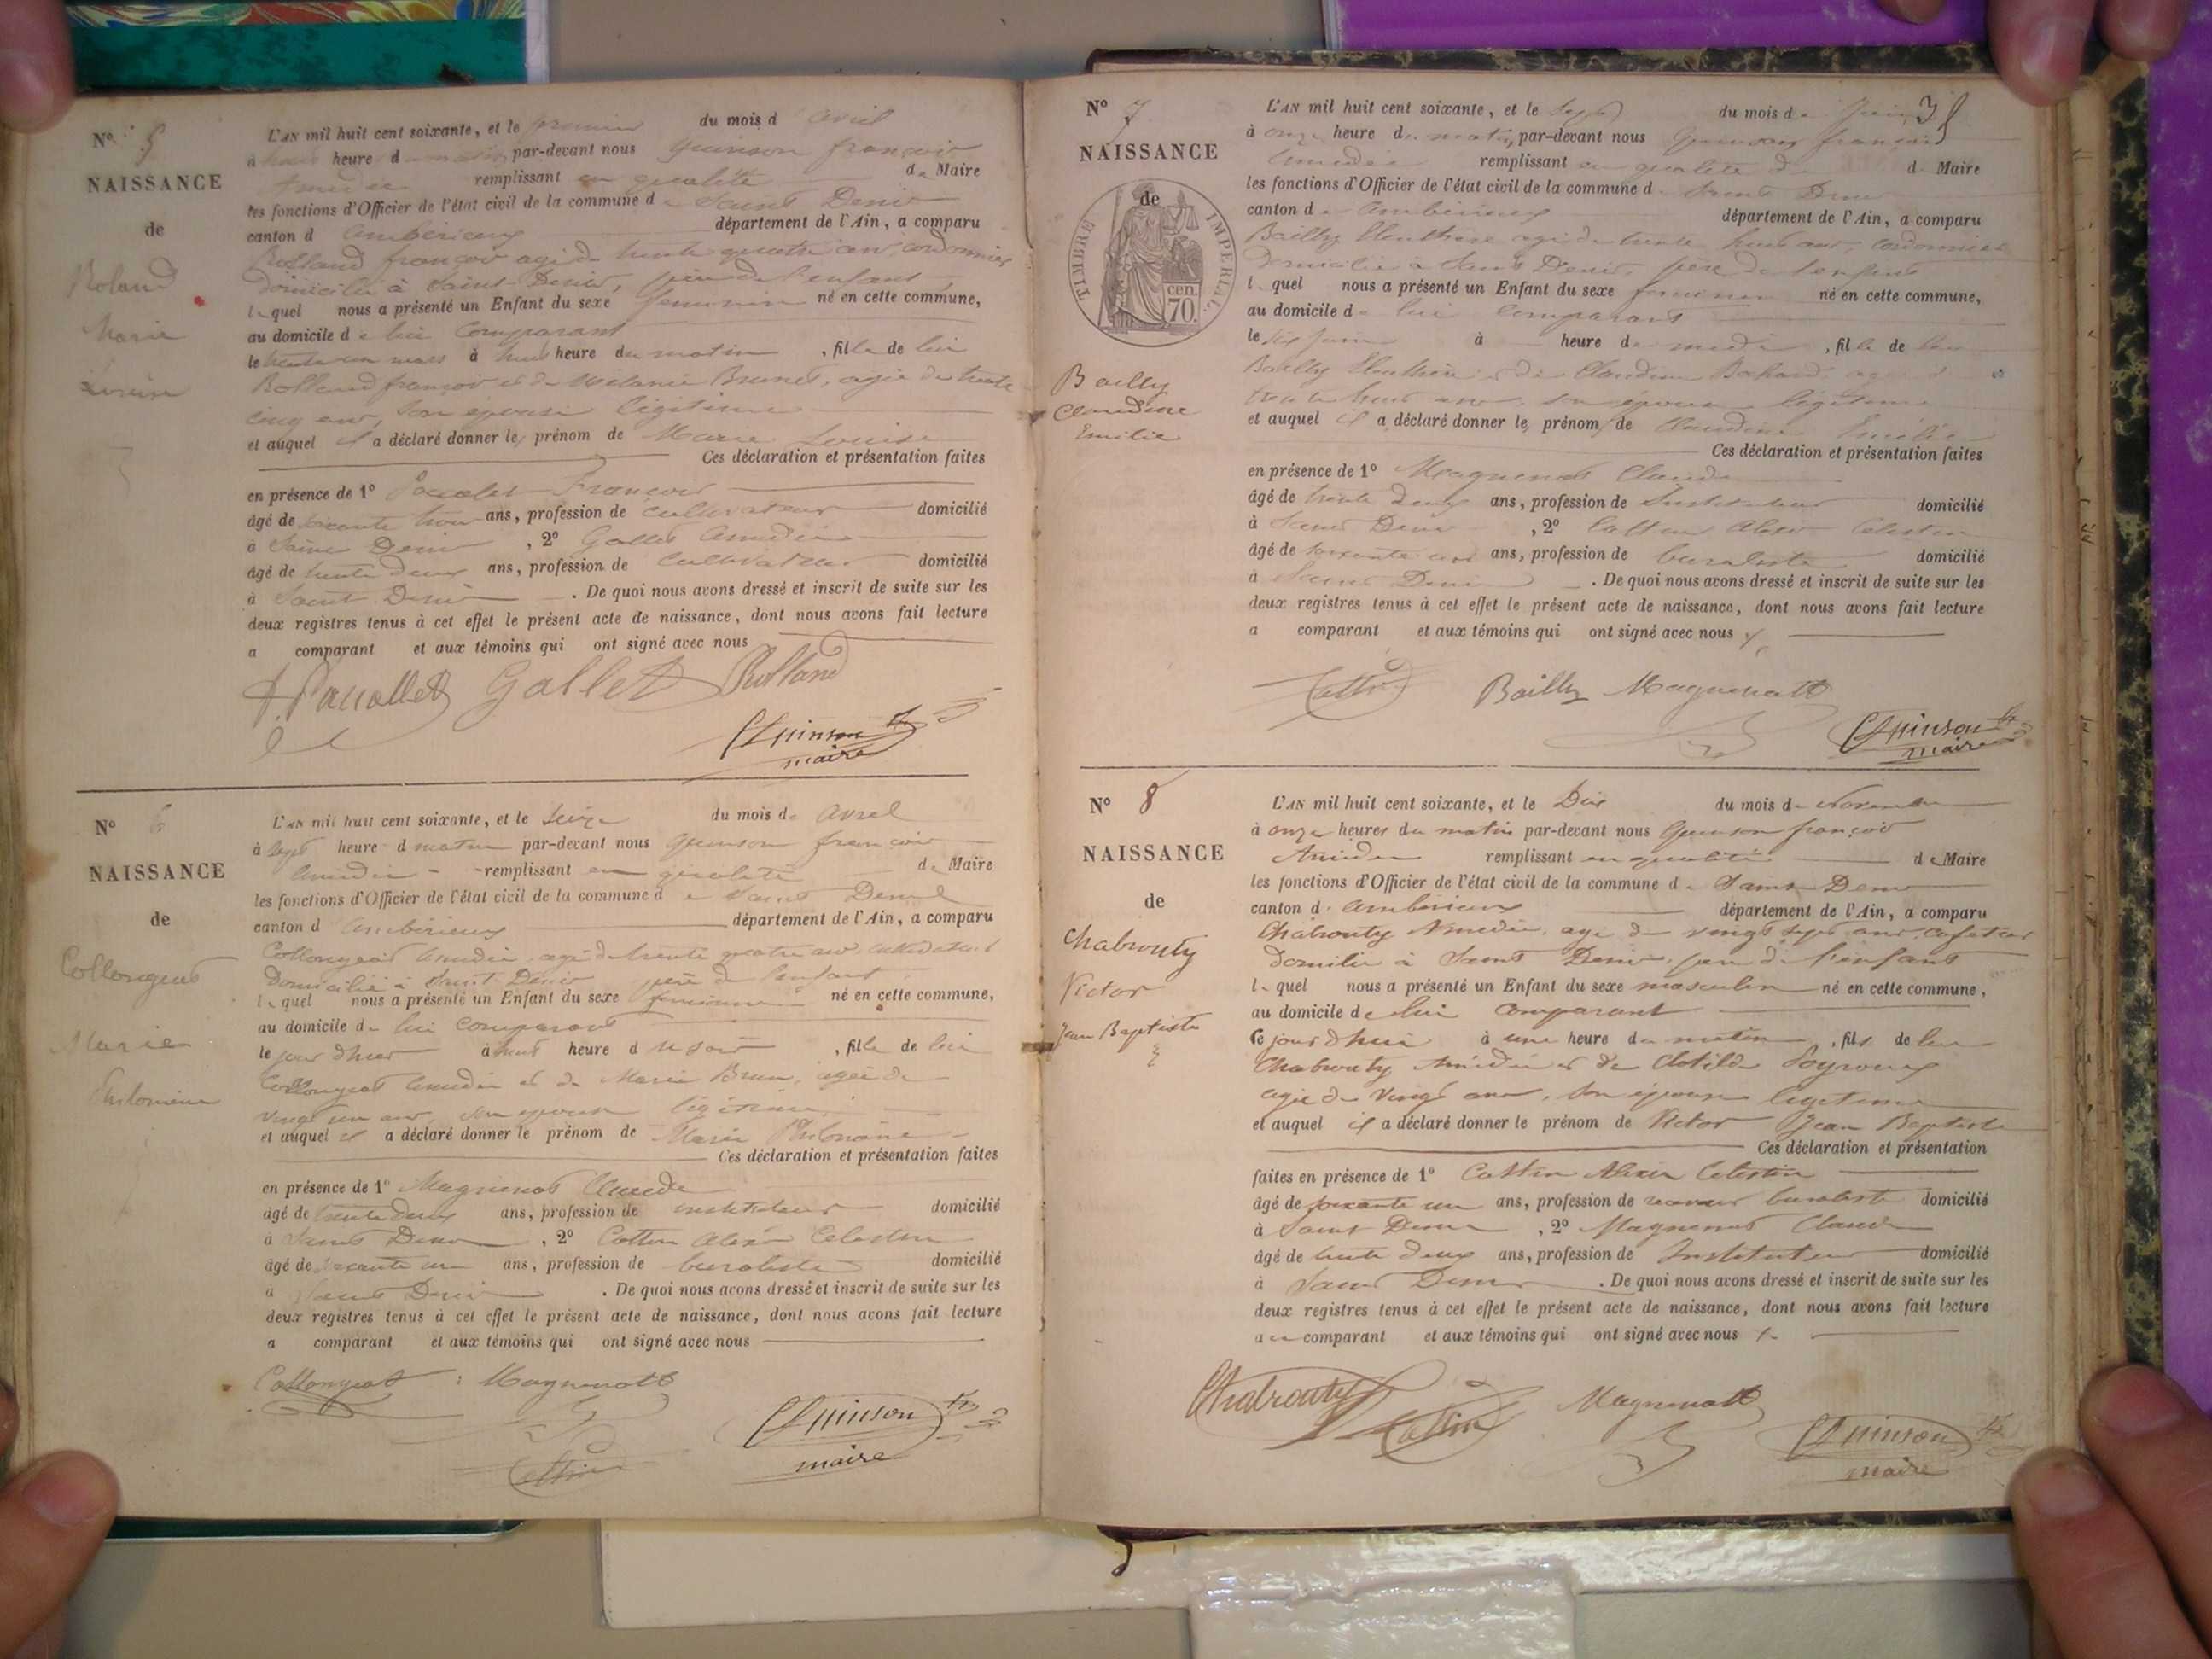 N° 5
NAISSANCE
de
Roland
Marie
Louise
L'AN mil huit cent soixante, et le premier du mois d'avril
à heure du matin, par-devant nous Quinson françois
Amédée remplissant en qualité de Maire
les fonctions d'Officier de l'état civil de la commune de Saint Denis
canton d'ambérieux département de l'Ain, a comparu
Rolland françois agé de trente quatre ans, cordonnier
domicilié à Saint Denis, père de l'enfant,
lequel nous a présenté un Enfant du sexe féminin né en cette commune,
au domicile de lui comparant
le trente un mars à huit heure du matin, fille de lui
Rolland françois et de Mélanie Brunet, agée de trente
cinq ans, son épouse légitime
et auquel il a déclaré donner les prénom de Marie Louise
Ces déclaration et présentation faites
en présence de 1° François
âgé de soixante trois ans, profession de cultivateur domicilié
à Saint Denis, 2° Gallet Amédée
âgé de trente deux ans, profession de cultivateur domicilié
à Saint Denis. De quoi nous avons dressé et inscrit de suite sur les
deux registres tenus à cet effet le présent acte de naissance, dont nous avons fait lecture
a comparant et aux témoins qui ont signé avec nous
Gallet Rolland
Quinson
maire
N° 6
NAISSANCE
de
Collongeat
Marie
Philomène
L'AN mil huit cent soixante, et le seize du mois de avril
à sept heure d matin par-devant nous Quinson françois
Amédée remplissant en qualité de Maire
les fonctions d'Officier de l'état civil de la commune de Saint Denis
canton d'ambérieux département de l'Ain, a comparu
Collongeat Amédée, agé de trente quatre ans, cultivateur
domicilié à Saint Denis père de l'enfant
lequel nous a présenté un Enfant du sexe féminin né en cette commune,
au domicile de lui comparant
le jour d'hier à huit heure du soir, fille de lui
Collongeat Amédée et de Marie Brun, agée de
vingt un ans, son épouse légitime
et auquel il a déclaré donner le prénom de Marie Philomène
Ces déclaration et présentation faites
en présence de 1° Magnenat Claude
âgé de trente deux ans, profession de instituteur domicilié
à Saint Denis, 2° Cottin Alexis Celestin
âgé de soixante un ans, profession de buraliste domicilié
à Saint Denis. De quoi nous avons dressé et inscrit de suite sur les
deux registres tenus à cet effet le présent acte de naissance, dont nous avons fait lecture
a comparant et aux témoins qui ont signé avec nous
Collongeat Magnenatt
Cottin
Quinson
maire
N° 7
NAISSANCE
de
TIMBRE IMPERIAL
70 cen.
Bailly
Claudine
Emilie
L'AN mil huit cent soixante, et le sept du mois de juin
à onze heure du matin, par-devant nous Quinson françois
Amédée remplissant en qualité de Maire
les fonctions d'Officier de l'état civil de la commune de Saint Denis
canton d'ambérieux département de l'Ain, a comparu
Bailly Eleuthère agé de trente huit ans, cordonnier
domicilié à Saint Denis, père de l'enfant
lequel nous a présenté un Enfant du sexe féminin né en cette commune,
au domicile de lui comparant
le six juin à heure de midi, fille de lui
Bailly Eleuthère et de Claudine
trente huit ans son épouse légitime
et auquel il a déclaré donner les prénom de Claudine Emilie
Ces déclaration et présentation faites
en présence de 1° Magnenat Claude
âgé de trente deux ans, profession de Instituteur domicilié
à Saint Denis, 2° Cottin Alexis Celestin
âgé de soixante un ans, profession de buraliste domicilié
à Saint Denis. De quoi nous avons dressé et inscrit de suite sur les
deux registres tenus à cet effet le présent acte de naissance, dont nous avons fait lecture
a comparant et aux témoins qui ont signé avec nous
Cottin Bailly Magnenatt
Quinson
maire
N° 8
NAISSANCE
de
Chabrouty
Victor
Jean Baptiste
L'AN mil huit cent soixante, et le Dix du mois de Novembre
à onze heures du matin par-devant nous Quinson françois
Amédée remplissant en qualité de Maire
les fonctions d'Officier de l'état civil de la commune de Saint Denis
canton d'ambérieux département de l'Ain, a comparu
Chabrouty Amédée, agé de vingt sept ans, cafetier
domicilié à Saint Denis, père de l'enfant
lequel nous a présenté un Enfant du sexe masculin né en cette commune,
au domicile de lui comparant
Ce jourd'hui à une heure du matin, fils de lui
Chabrouty Amédée et de Clotilde
agée de vingt ans, son épouse légitime
et auquel il a déclaré donner le prénom de Victor Jean Baptiste
Ces déclaration et présentation
faites en présence de 1° Cottin Alexis Celestin
âgé de soixante un ans, profession de receveur buraliste domicilié
à Saint Denis, 2° Magnenat Claude
âgé de trente deux ans, profession de Instituteur domicilié
à Saint Denis. De quoi nous avons dressé et inscrit de suite sur les
deux registres tenus à cet effet le présent acte de naissance, dont nous avons fait lecture
au comparant et aux témoins qui ont signé avec nous
Chabrouty Cottin Magnenatt
Quinson
maire